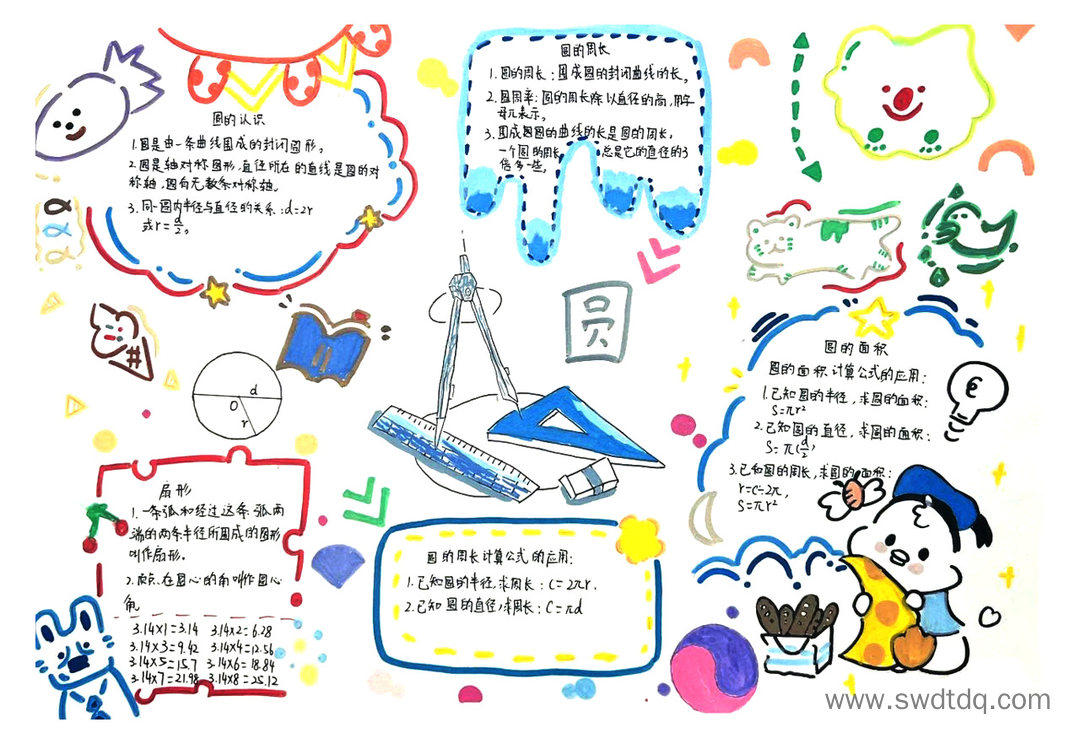 圆的认识
1.圆是由一条曲线围成的封闭图形。
2.圆是轴对称图形,直径所在的直线是圆的对
称轴,圆有无数条对称轴。
3.同一圆内半径与直径的关系:d=2r
或r=d/2。
圆的周长
1.圆的周长:围成圆的封闭曲线的长。
2.圆周率:圆的周长除以直径的商,用字
母π表示。
3.围成圆的曲线的长是圆的周长,
一个圆的周长总是它的直径的3
倍多一些。
圆
d
O
r
圆的面积
圆的面积计算公式的应用:
1.已知圆的半径,求圆的面积:
S=πr²
2.已知圆的直径,求圆的面积:
S=π(d/2)
3.已知圆的周长,求圆的面积:
r=C÷2π,
S=πr²
扇形
1.一条弧和经过这条弧两
端的两条半径所围成的图形
叫作扇形。
2.顶点在圆心的角叫作圆心
角
3.14×1=3.14 3.14×2=6.28
3.14×3=9.42 3.14×4=12.56
3.14×5=15.7 3.14×6=18.84
3.14×7=21.98 3.14×8=25.12
圆的周长计算公式的应用:
1.已知圆的半径,求周长:C=2πr.
2.已知圆的直径,求周长:C=πd
www.swdtdq.com